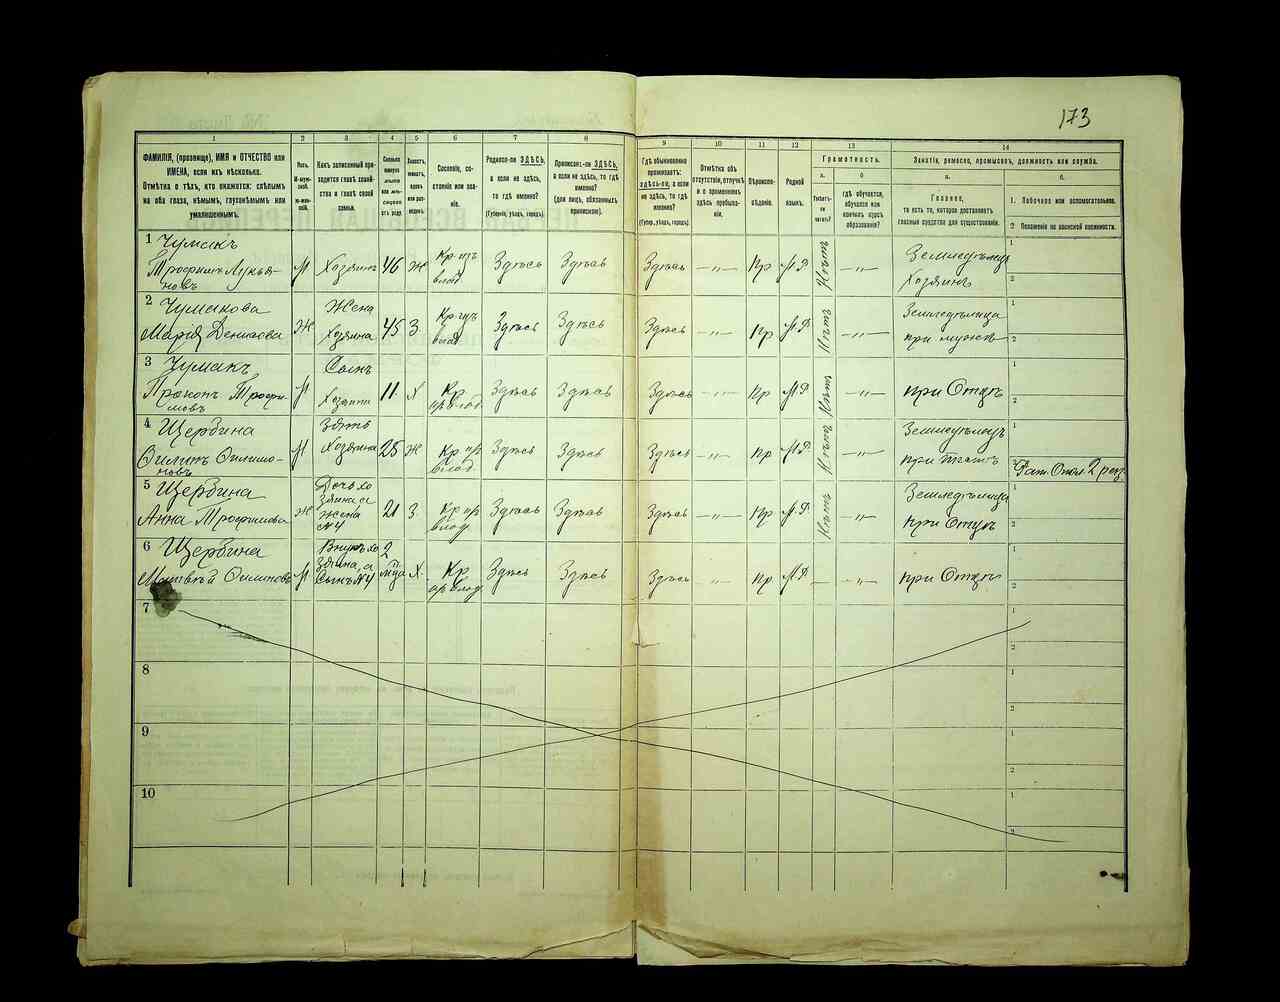 173
1 2 3 4 5 6 7 8 9 10 11 12 13 14
ФАМИЛІЯ, (прозвище), ИМЯ и ОТЧЕСТВО или
ИМЕНА, если ихъ нѣсколько.
Отмѣтка о тѣхъ, кто окажется: слѣпымъ
на оба глаза, нѣмымъ, глухонѣмымъ или
умалишеннымъ.
Полъ.
М-муж-
ской.
Ж-жен-
скій.
Какъ записанный при-
ходится главѣ хозяй-
ства и главѣ своей
семьи.
Сколько
минуло
лѣтъ
или мѣ-
сяцевъ
отъ роду.
Холостъ,
женатъ,
вдовъ
или раз-
веденъ.
Сословіе, со-
стояніе или зва-
ніе.
Родился-ли ЗДѢСЬ,
а если не здѣсь,
то гдѣ именно?
(Губернія, уѣздъ, городъ).
Приписанъ-ли ЗДѢСЬ,
а если не здѣсь, то гдѣ
именно?
(для лицъ, обязанныхъ
припискою).
Гдѣ обыкновенно
проживаетъ:
здѣсь-ли, а если
не здѣсь, то гдѣ
именно?
(Губер., уѣздъ, городъ).
Отмѣтка объ
отсутствіи, отлучкѣ
и о временномъ
здѣсь пребыва-
ніи.
Вѣроиспо-
вѣданіе.
Родной
языкъ.
Грамотность.
а.
Умѣетъ-
ли
читать?
б
гдѣ обучается,
обучался или
кончилъ курсъ
образованія?
Занятіе, ремесло, промыселъ, должность или служба.
а.
Главное,
то есть то, которое доставляетъ
главныя средства для существованія.
б.
1. Побочное или вспомогательное.
2 Положеніе по воинской повинности.
1 Чумакъ
Трофимъ Лукья-
новъ М Хозяинъ 46 Ж Кр. Здѣсь Здѣсь Здѣсь —"— Пр М.Р Нѣтъ —"— Земледѣлецъ
Хозяинъ 1 2
2 Чумакова Жена
Марія Денисова Ж Хозяина 45 З. Кр. Здѣсь Здѣсь Здѣсь —"— Пр М.Р Нѣтъ —"— Земледѣлица
при мужѣ 1 2
3 Чумакъ Сынъ
Прокопъ Трофи-
мовъ М Хозяина 11 Х Кр Здѣсь Здѣсь Здѣсь —"— Пр М.Р Нѣтъ —"— при Отцѣ 1 2
4 Щербина Зять
Филипъ Филимо-
новъ М Хозяина 25 Ж Кр Здѣсь Здѣсь Здѣсь —"— Пр М.Р Нѣтъ —"— Земледѣлецъ
при 2
5 Щербина Дочь хо
зяина и
Жена
№4
Анна Трофимова Ж 21 З. Кр Здѣсь Здѣсь Здѣсь —"— Пр М.Р Нѣтъ —"— Земледѣлица
при Отцѣ 1 2
6 Щербина Внукъ хо
зяина, а
Сынъ №4
Матвѣй Филиповъ М 2 мца Х. Кр Здѣсь Здѣсь Здѣсь —"— Пр М.Р — —"— при Отцѣ 1 2
7 1 2
8 1 2
9 1 2
10 1 2